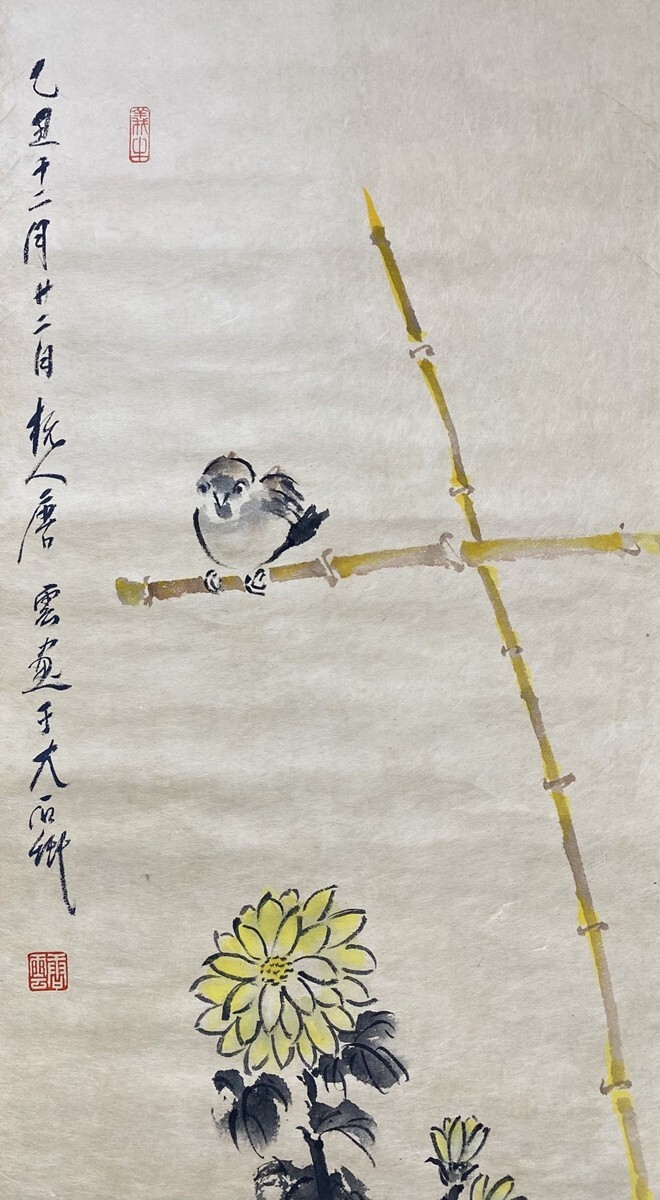 乙丑十二月廿二日杭人唐雲畫于大石
唐雲